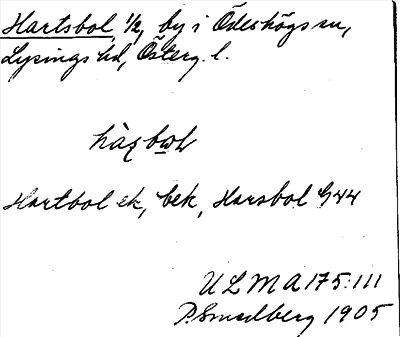 Hartsbol, 1/2, by i Ödeshögs sn,
Lysings hd, Österg. l.
hàʂbωL
Hartbol ek, bek, Harsbol G44
ULMA 175:111
P. Smedberg 1905